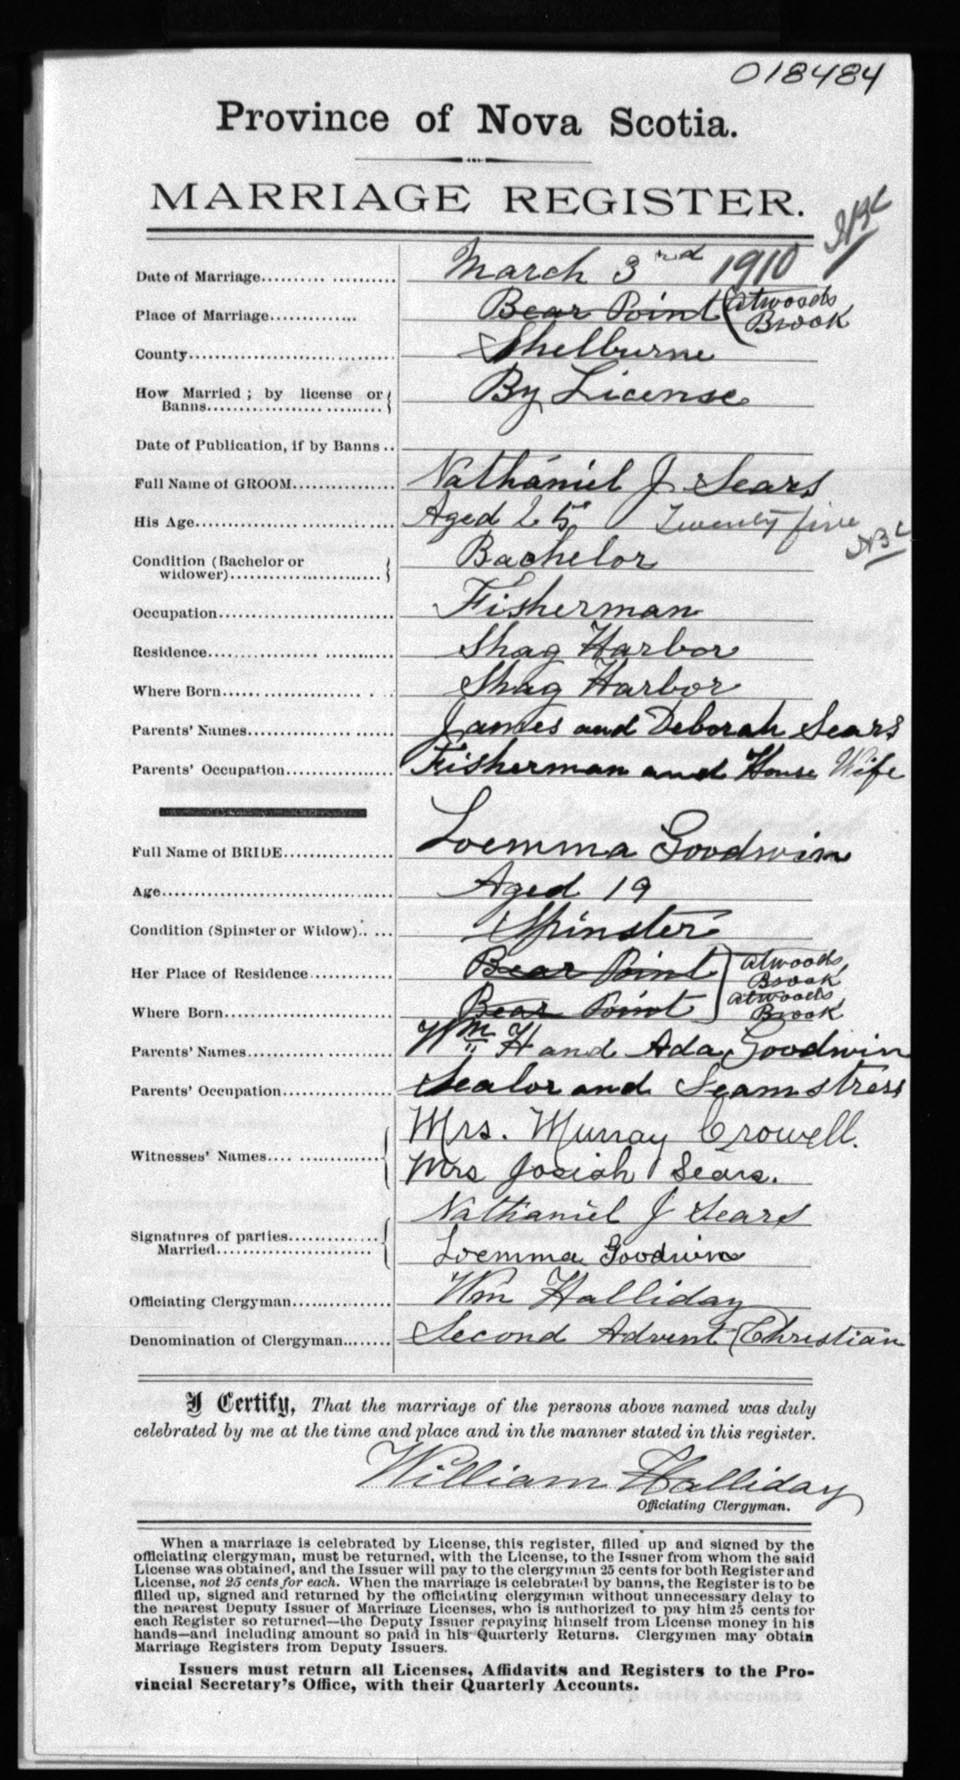 018484
Province of Nova Scotia.
MARRIAGE REGISTER.
Date of Marriage.......... March 3rd 1910
Place of Marriage............. Bear Point (Atwoods
Brook
County.............................. Shelburne
How Married; by license or
Banns.............................. By License
Date of Publication, if by Banns ..
Full Name of GROOM................ Nathaniel J Sears
His Age.............................. Aged 25 Twenty five
Condition (Bachelor or
widower).......................... Bachelor
Occupation.......................... Fisherman
Residence............................ Shag Harbor
Where Born.......................... Shag Harbor
Parents' Names...................... James and Deborah Sears
Parents' Occupation................ Fisherman and House Wife
Full Name of BRIDE................ Loemma Goodwin
Age.................................... Aged 19
Condition (Spinster or Widow)...... Spinster
Her Place of Residence............ Bear Point ] Atwoods
Brook
Where Born.......................... Bear Point Atwoods
Brook
Parents' Names...................... Wm H and Ada Goodwin
Parents' Occupation................ Sealor and Seamstress
Witnesses' Names.................. Mrs. Murray Crowell.
Mrs Josiah Sears.
Nathaniel J Sears
Signatures of parties..............
Married.............................. Loemma Goodwin
Officiating Clergyman.............. Wm Halliday
Denomination of Clergyman........ Second Advent (Christian
I Certify, That the marriage of the persons above named was duly
celebrated by me at the time and place and in the manner stated in this register.
William Halliday
Officiating Clergyman.
When a marriage is celebrated by License, this register, filled up and signed by the
officiating clergyman, must be returned, with the License, to the Issuer from whom the said
License was obtained, and the Issuer will pay to the clergyman 25 cents for both Register and
License, not 25 cents for each. When the marriage is celebrated by banns, the Register is to be
filled up, signed and returned by the officiating clergyman without unnecessary delay to
the nearest Deputy Issuer of Marriage Licenses, who is authorized to pay him 25 cents for
each Register so returned—the Deputy Issuer repaying himself from License money in his
hands—and including amount so paid in his Quarterly Returns. Clergymen may obtain
Marriage Registers from Deputy Issuers.
Issuers must return all Licenses, Affidavits and Registers to the Pro-
vincial Secretary's Office, with their Quarterly Accounts.